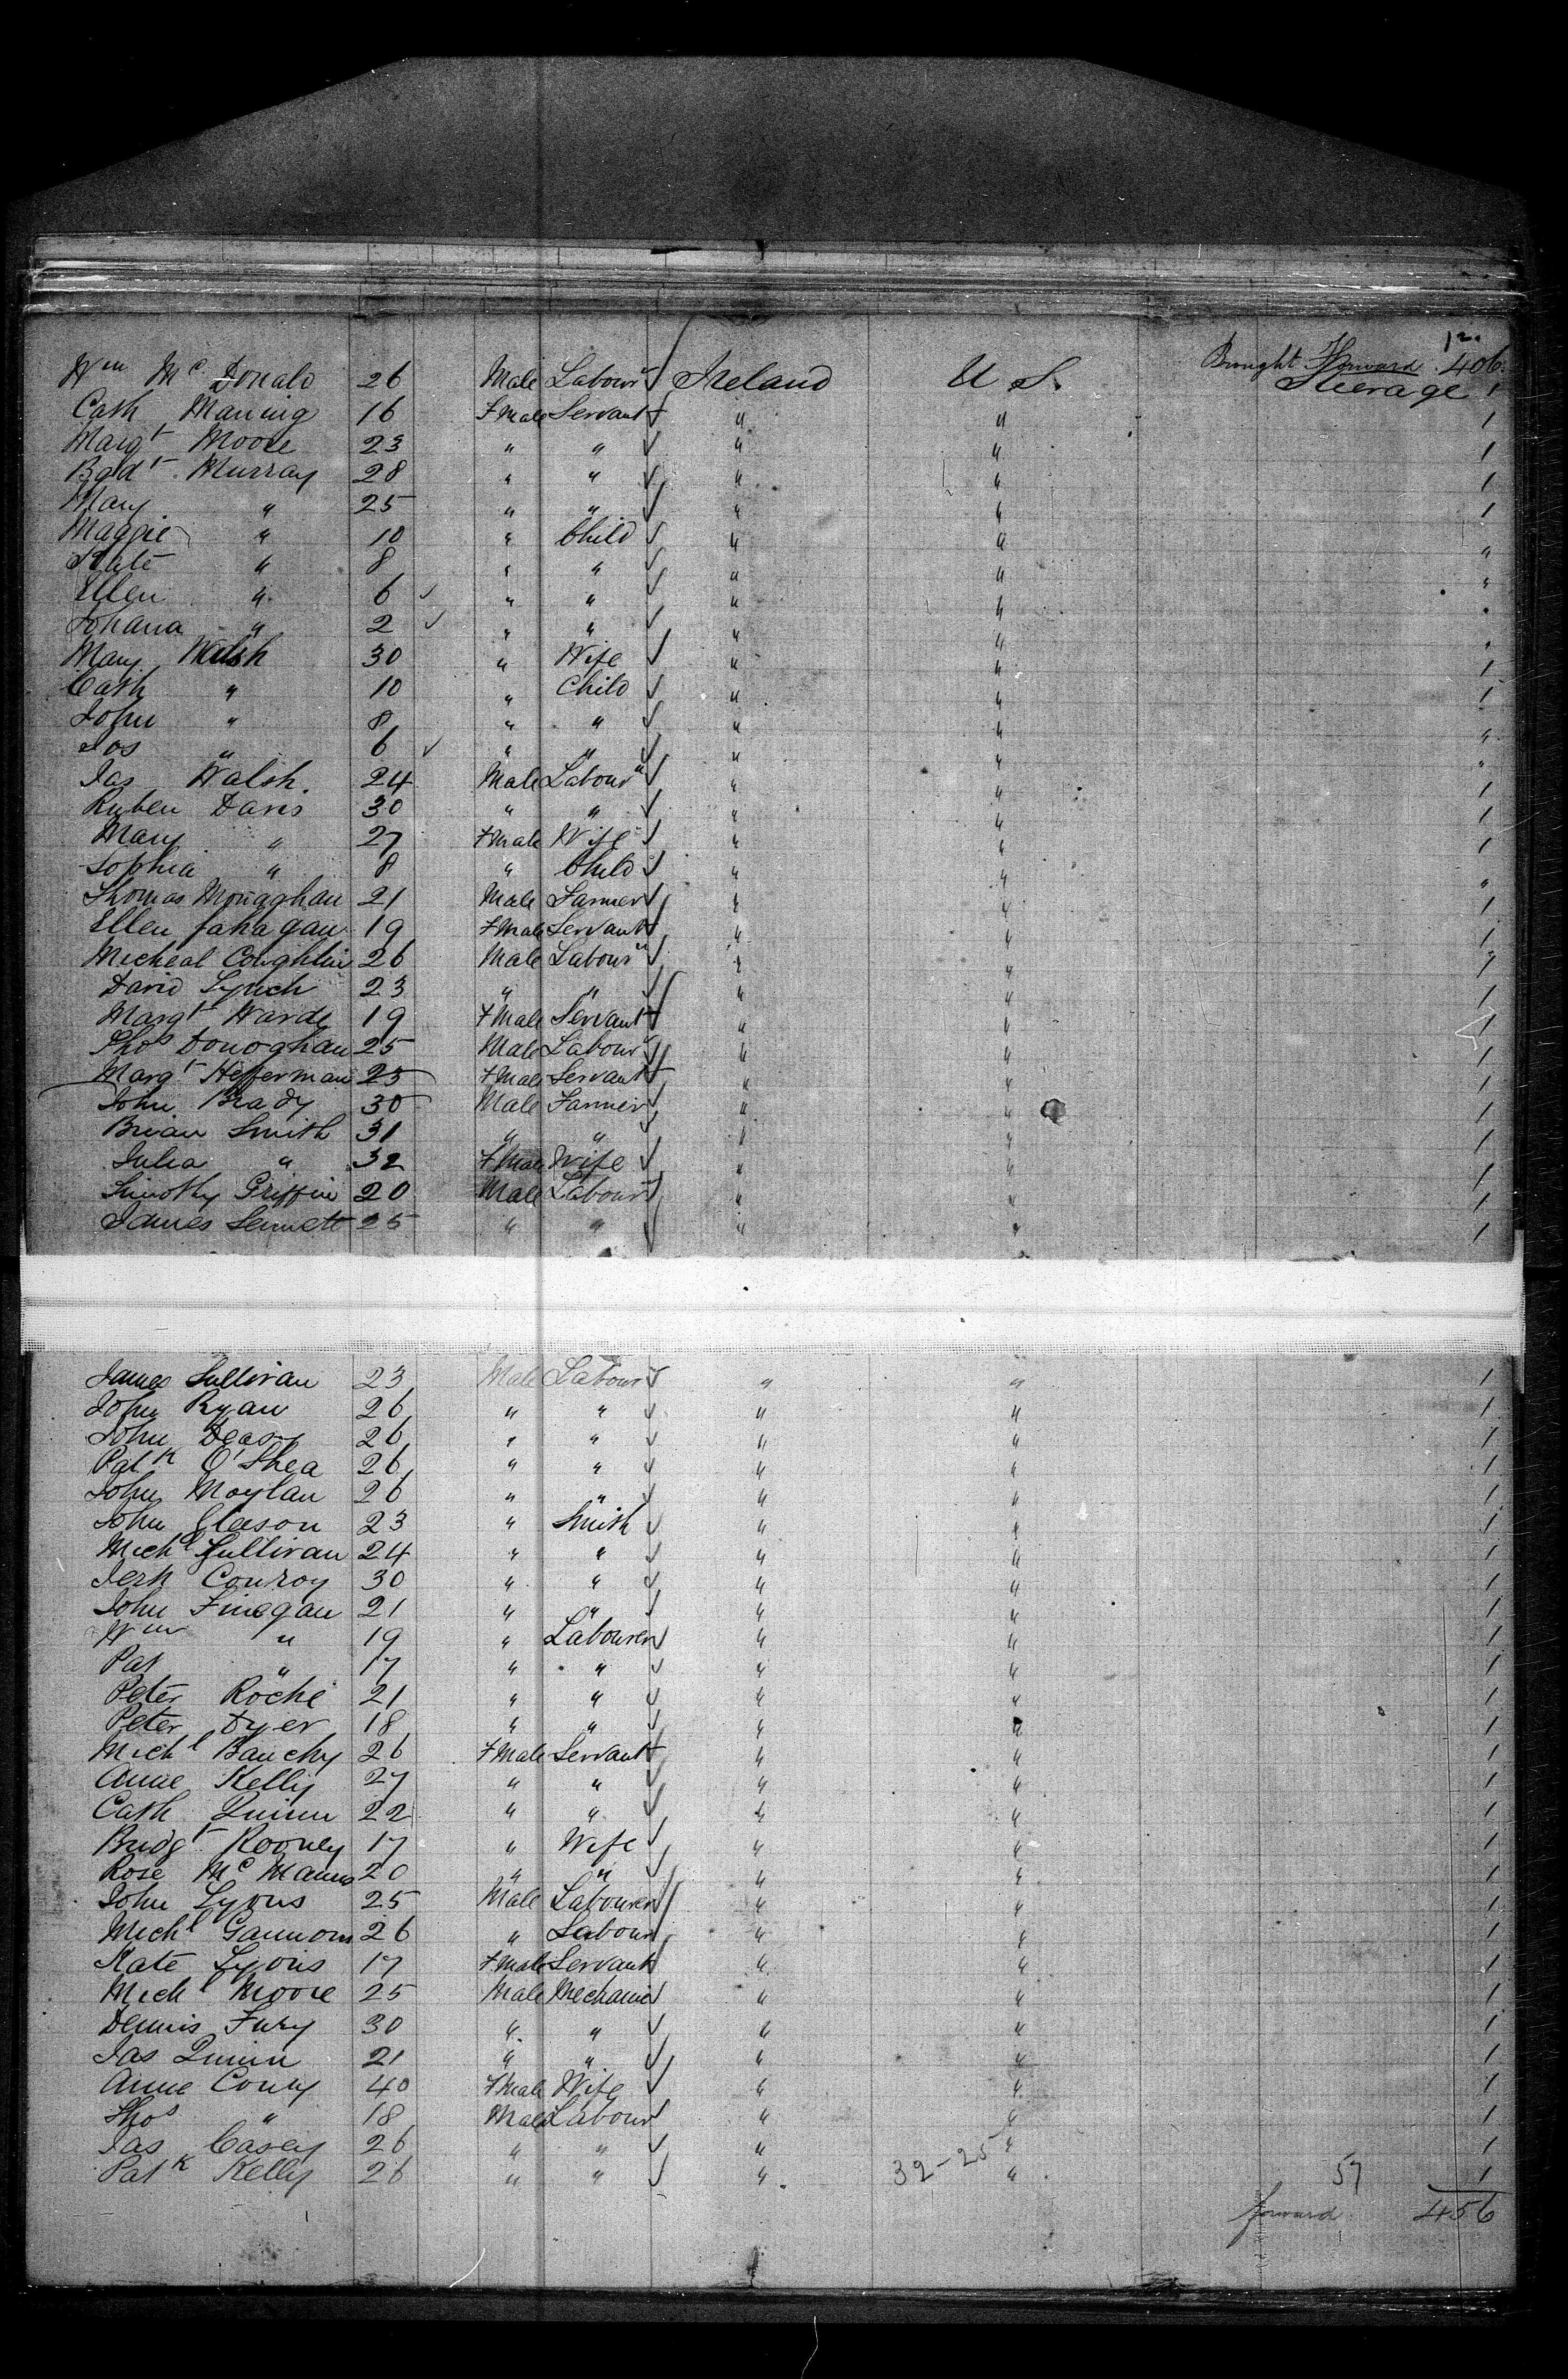 12.
Brought Forward 406
Wm Mc Donald 26 Male Labour Ireland U S. Steerage 1
Cath Maning 16 FMale Servant " " 1
Margt Moore 23 " " " " 1
Bgdt Murray 28 " " " " 1
Mary " 25 " " " " 1
Maggie " 10 " Child " " "
Kate " 8 " " " " "
Ellen " 6 " " " " "
Johana " 2 " " " " "
Mary Walsh 30 " Wife " " 1
Cath " 10 " Child " " 1
John " 8 " " " " "
Jos " 6 " " " " "
Jas Walsh. 24 Male Labour " " 1
Ruben Davis 30 " " " " 1
Mary " 27 FMale Wife " " 1
Sophia " 8 " Child " " "
Thomas Monaghan 21 Male Farmer " " 1
Ellen Fahagan 19 FMale Servant " " 1
Micheal Coughlin 26 Male Labour " " 1
David Lynch 23 " " " " 1
Margt Warde 19 FMale Servant " " 1
Thos Donoghan 25 Male Labour " " 1
Margt Hefferman 23 FMale Servant " " 1
John Brady 30 Male Farmer " " 1
Brian Smith 31 " " " " 1
Julia " 32 FMale Wife " " 1
Timothy Griffin 20 Male Labour " " 1
James Sennett 25 " " " " 1
James Sullivan 23 Male Labour " " 1
John Ryan 26 " " " " 1
John Deasy 26 " " " " 1
Patk O'Shea 26 " " " " 1
John Moylan 26 " " " " 1
John Gleason 23 " Smith " " 1
Michl Sullivan 24 " " " " 1
Jerh Conroy 30 " " " " 1
John Finegan 21 " " " " 1
Wm " 19 " Labourer " " 1
Pat " 17 " " " " 1
Peter Roche 21 " " " " 1
Peter Dyer 18 " " " " 1
Michl 26 FMale Servant " " 1
Anne Kelly 27 " " " " 1
Cath Quinn 22 " " " " 1
Bridgt Rooney 17 " Wife " " 1
Rose Mc Manus 20 " " " " 1
John Lyons 25 Male Labourer " " 1
Michl Gannon 26 " Labour " " 1
Kate Lyons 17 FMale Servant " " 1
Michl Moore 25 Male Mechanic " " 1
Dennis Fury 30 " " " " 1
Jas Quinn 21 " " " " 1
Anne Conry 40 FMale Wife " " 1
Thos " 18 Male Labour " " 1
Jas Casey 26 " " " " 1
Patk Kelly 26 " " " 32-25 " 57 1
forward 456